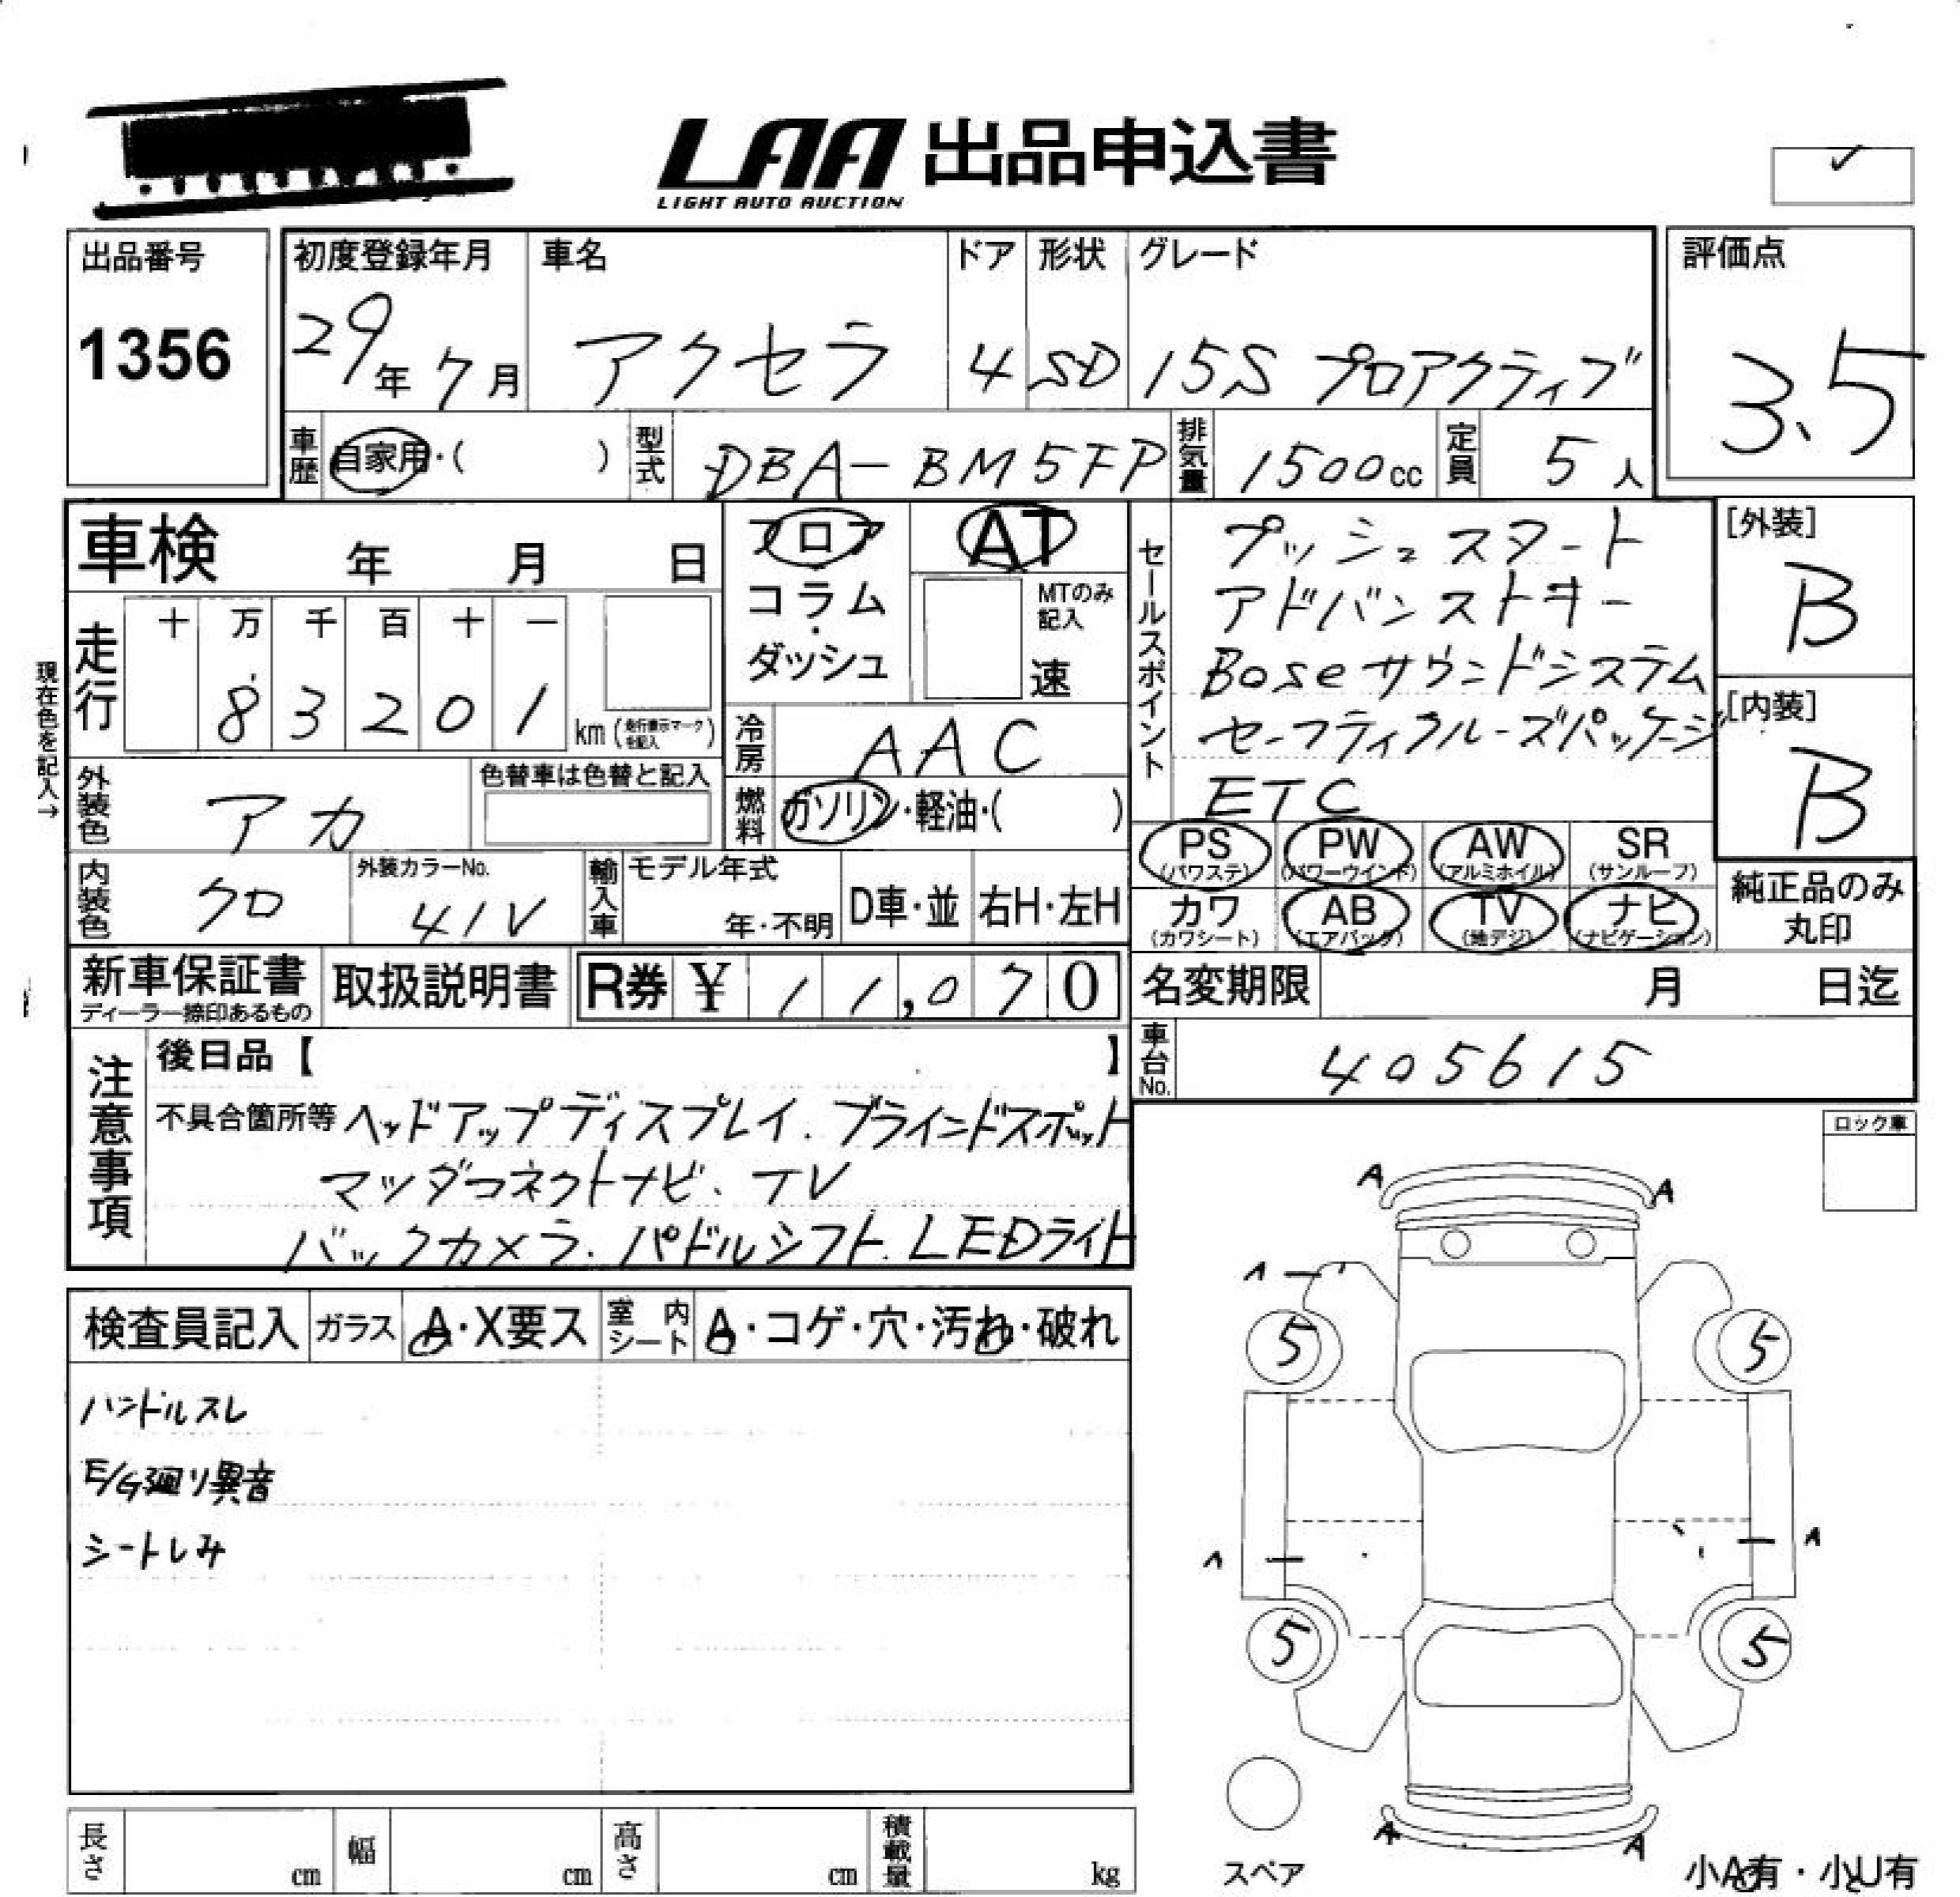 LAA 出品申込書
LIGHT AUTO AUCTION
出品番号
1356
初度登録年月
29年7月
車名
アクセラ
ドア
4
形状
SD
グレード
15S プロアクティブ
評価点
3.5
車歴 自家用・( )
型式 DBA-BM5FP
排気量 1500cc
定員 5人
車検 年 月 日
フロア
コラム・
ダッシュ
AT
MTのみ
記入
速
走行
十 万 千 百 十 一
8 3 2 0 1
km(走行表示マークを記入)
現在色を記入→
冷房 AAC
燃料 ガソリン・軽油・( )
外装色 アカ
色替車は色替と記入
内装色 クロ
外装カラーNo.
41V
輸入車
モデル年式
年・不明
D車・並
右H・左H
セールスポイント
プッシュスタート
アドバンストキー
Boseサウンドシステム
セーフティクルーズパッケージ
ETC
[外装]
B
[内装]
B
PS
(パワステ)
PW
(パワーウインド)
AW
(アルミホイル)
SR
(サンルーフ)
カワ
(カワシート)
AB
(エアバック)
TV
(地デジ)
ナビ
(ナビゲーション)
純正品のみ
丸印
新車保証書
ディーラー捺印あるもの
取扱説明書
R券 ¥ 11,070
名変期限 月 日迄
車台No. 405615
注意事項
後日品【 】
不具合箇所等 ヘッドアップディスプレイ.ブラインドスポット
マツダコネクトナビ、TV
バックカメラ.パドルシフト.LEDライト
ロック車
検査員記入
ガラス A・X要ス
室内シート A・コゲ・穴・汚れ・破れ
ハンドルスレ
E/G廻り異音
シートしみ
A
A
A
5
5
A
A
5
5
A
A
スペア
小A有・小U有
長さ cm
幅 cm
高さ cm
積載量 kg